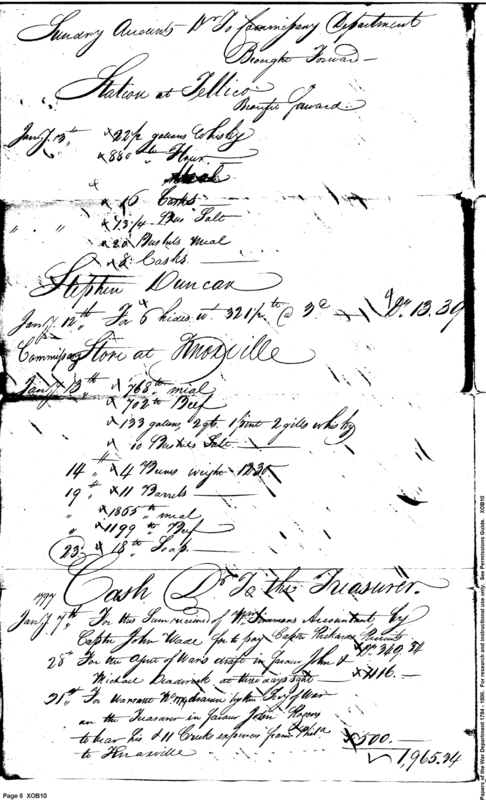 Sundry Accounts Dr To Commissary Department
Brought Forward —
Station at Tellico
Brought forward
Jany. 13th x 22½ gallons Whisky
x 880 lb Flour
x 16 Casks —
" " x 13¼ Bus Salt
x 20 Bushels Meal
x 8 Casks —
Stephen Duncan
Jany. 12th For 6 hides wt. 321½ lb @ 3d Dr. 13.39
Commissary Store at Knoxville
Jany 13th x 768 lb mial
x 702 lb Beef
x 133 gallons, 2 qts. 1 pint 2 gills whisky
x 10 Bushels Salt —
14th x 4 Beeves weight 1230
19th x 11 Barrels —
" x 1855 lb mial
" x 1199 lb Beef
23 x 18 lb Soap —
Cash Dr To the Treasurer.
1797
Jany. 7th For this Sum received of Wm Simmons Accountant, by
Captn John Wade for to pay Captn Richard
28th For the of Wars draft in favour John &
Michael at three days sight — 1116 —
31st For Warrant drawn by the Secy of War
on the Treasurer in favour John Rogers
to bear his & 11 Creeks expences from Phila
to Knoxville x 500. —
1,965.24
Page 6 XOB10
Papers of the War Department 1784 - 1800. For research and instructional use only. See Permissions Guide. XOB10